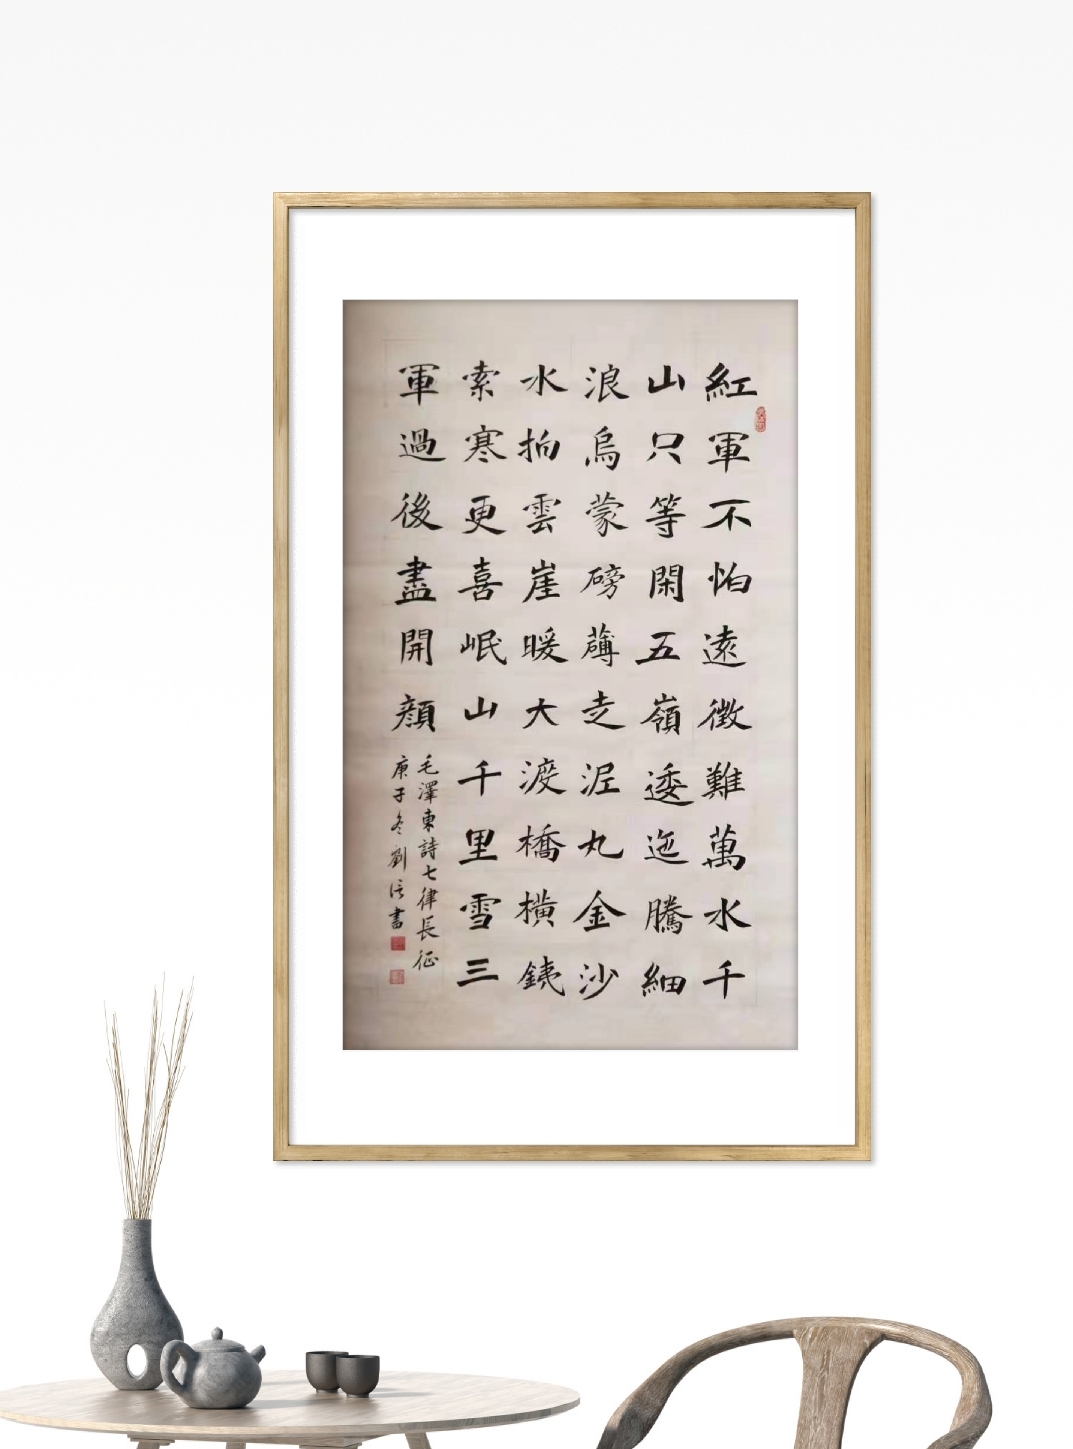 紅軍不怕遠徵難萬水千
山只等閑五嶺逶迤騰細
浪烏蒙磅礴走泥丸金沙
水拍雲崖暖大渡橋橫銕
索寒更喜岷山千里雪三
軍過後盡開顔
毛澤東詩七律長征
庚子冬劉信書